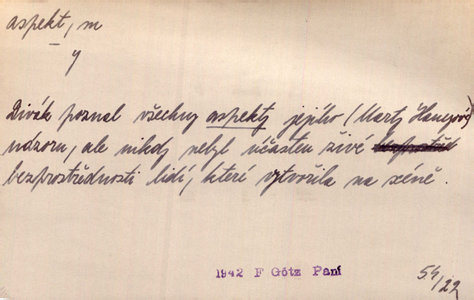 aspekt, m
y
Divák poznal všechny aspekty jejího (Marty Hanusové)
názoru, ale nikdy nebyl účasten živé
bezprostřednosti lidí, které vytvořila na scéně.
1942 F Götz Paní
54/22